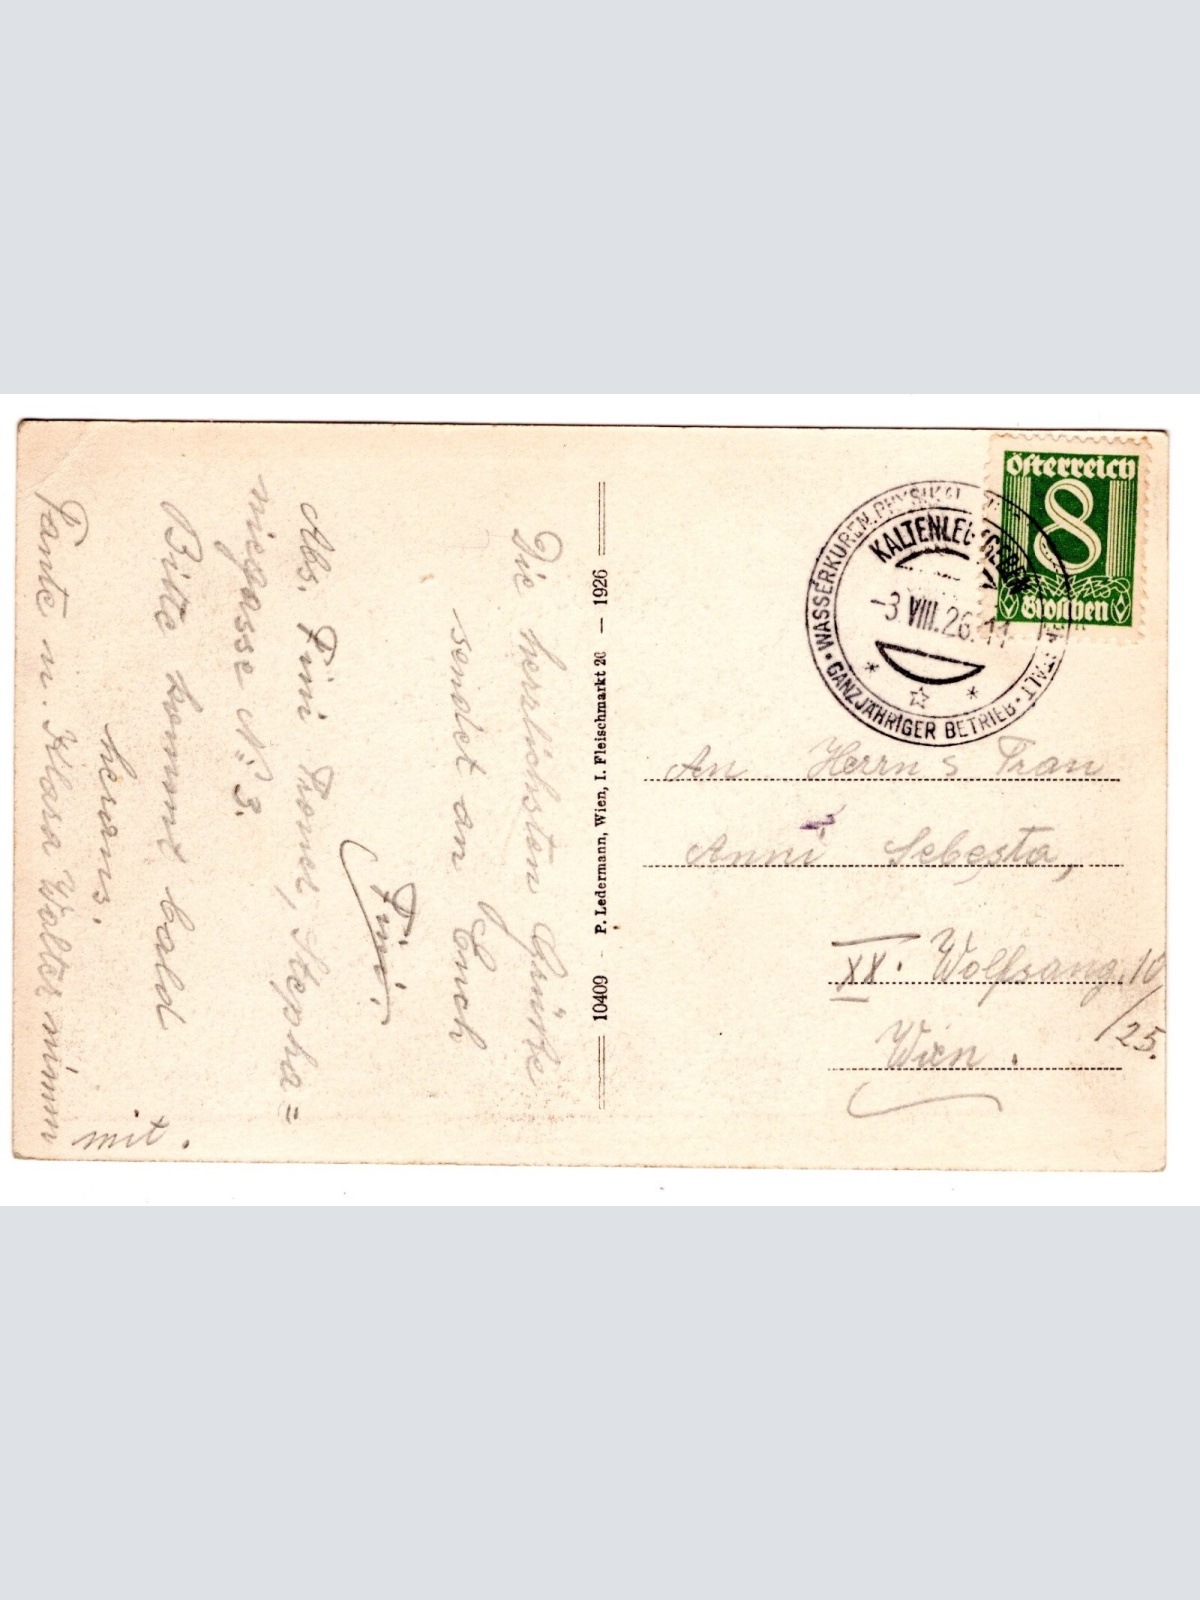 Die herzlichsten Grüße
sendet an Euch
Fini.
Abs. Fini Troner, Stepha=
niegasse No 3.
Bitte kommt bald
heraus.
Tante u. Klara Walter nimm
mit.
10409 P. Ledermann, Wien, I. Fleischmarkt 20 — 1926
Österreich
8
Groschen
WASSERKUREN. PHYSIKAL
KALTENLEUTGEBEN
-3.VIII.26.11
GANZJÄHRIGER BETRIEB
An Herrn & Frau
Anni Sebesta,
XX. Wolfsaug. 10
/25.
Wien.